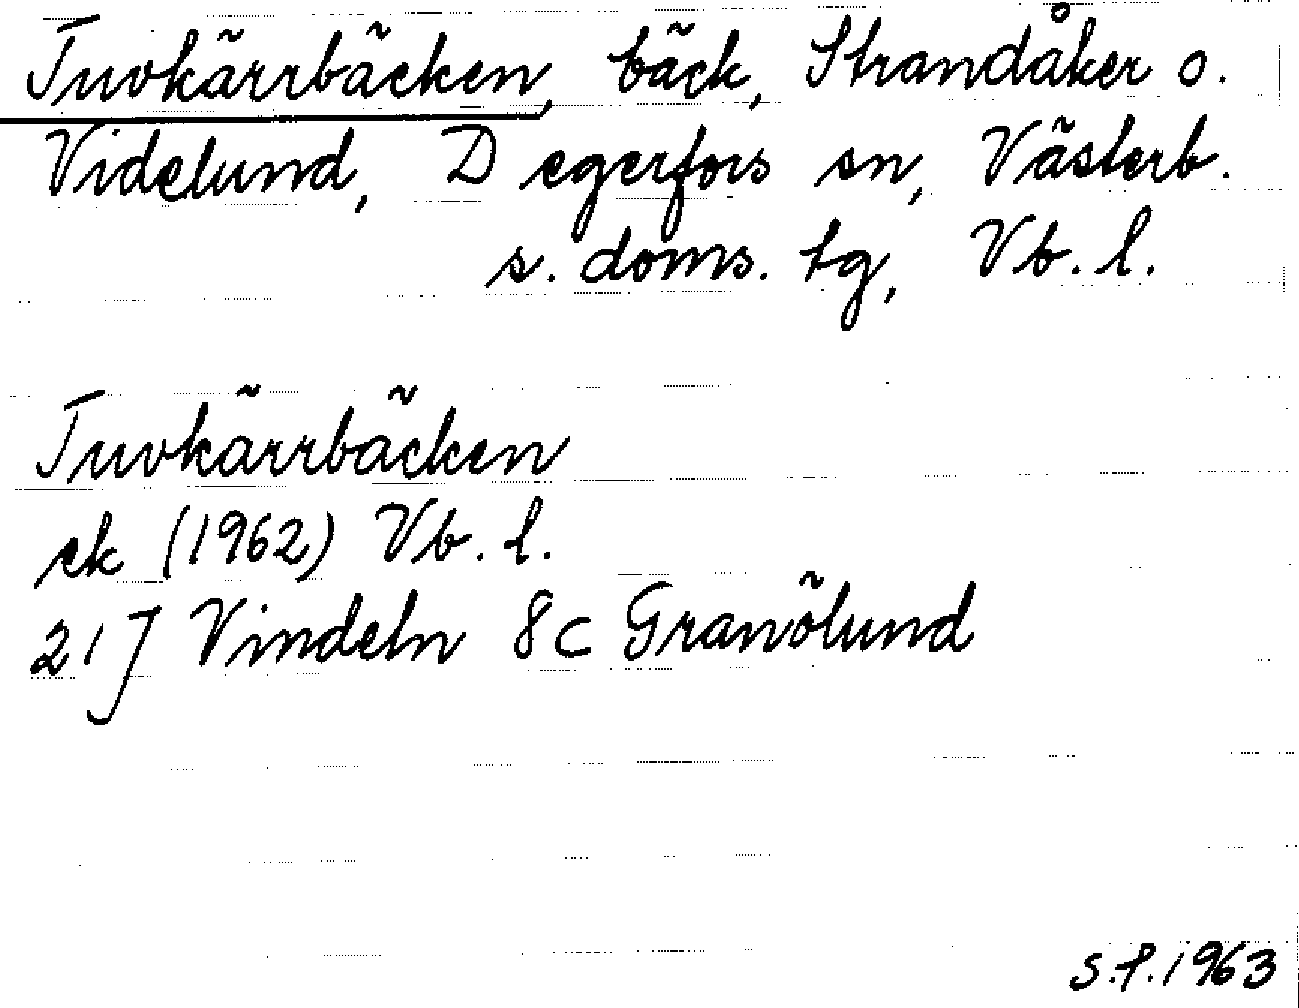 Tuvkärrbäcken, bäck, Strandåker o.
Videlund, Degerfors sn, Västerb.
s. doms. tg, Vb. l.
Tuvkärrbäcken
ek (1962) Vb. l.
21J Vindeln 8c Granölund
S.F. 1963